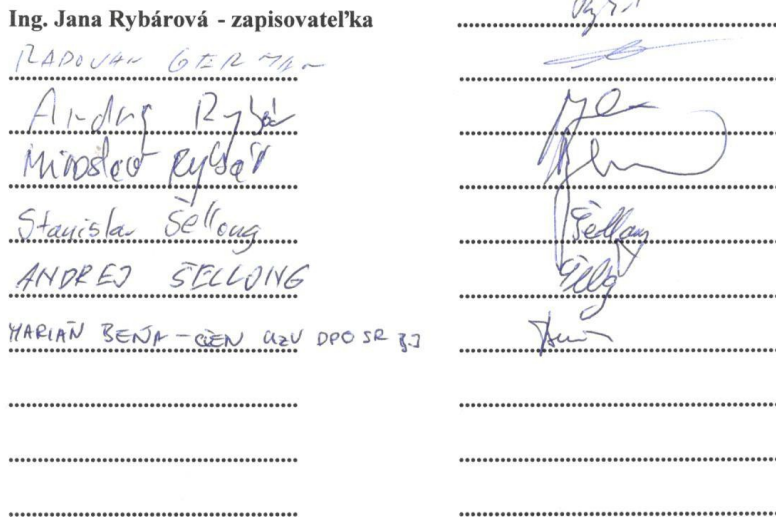 Ing. Jana Rybárová - zapisovateľka
RADOVAN GERMAN
Andrej Rybár
Miroslav Rybár
Stanislav Šellong
ANDREJ ŠELLONG
MARIÁN BEŇA - ČLEN ÚzV DPO SR BJ